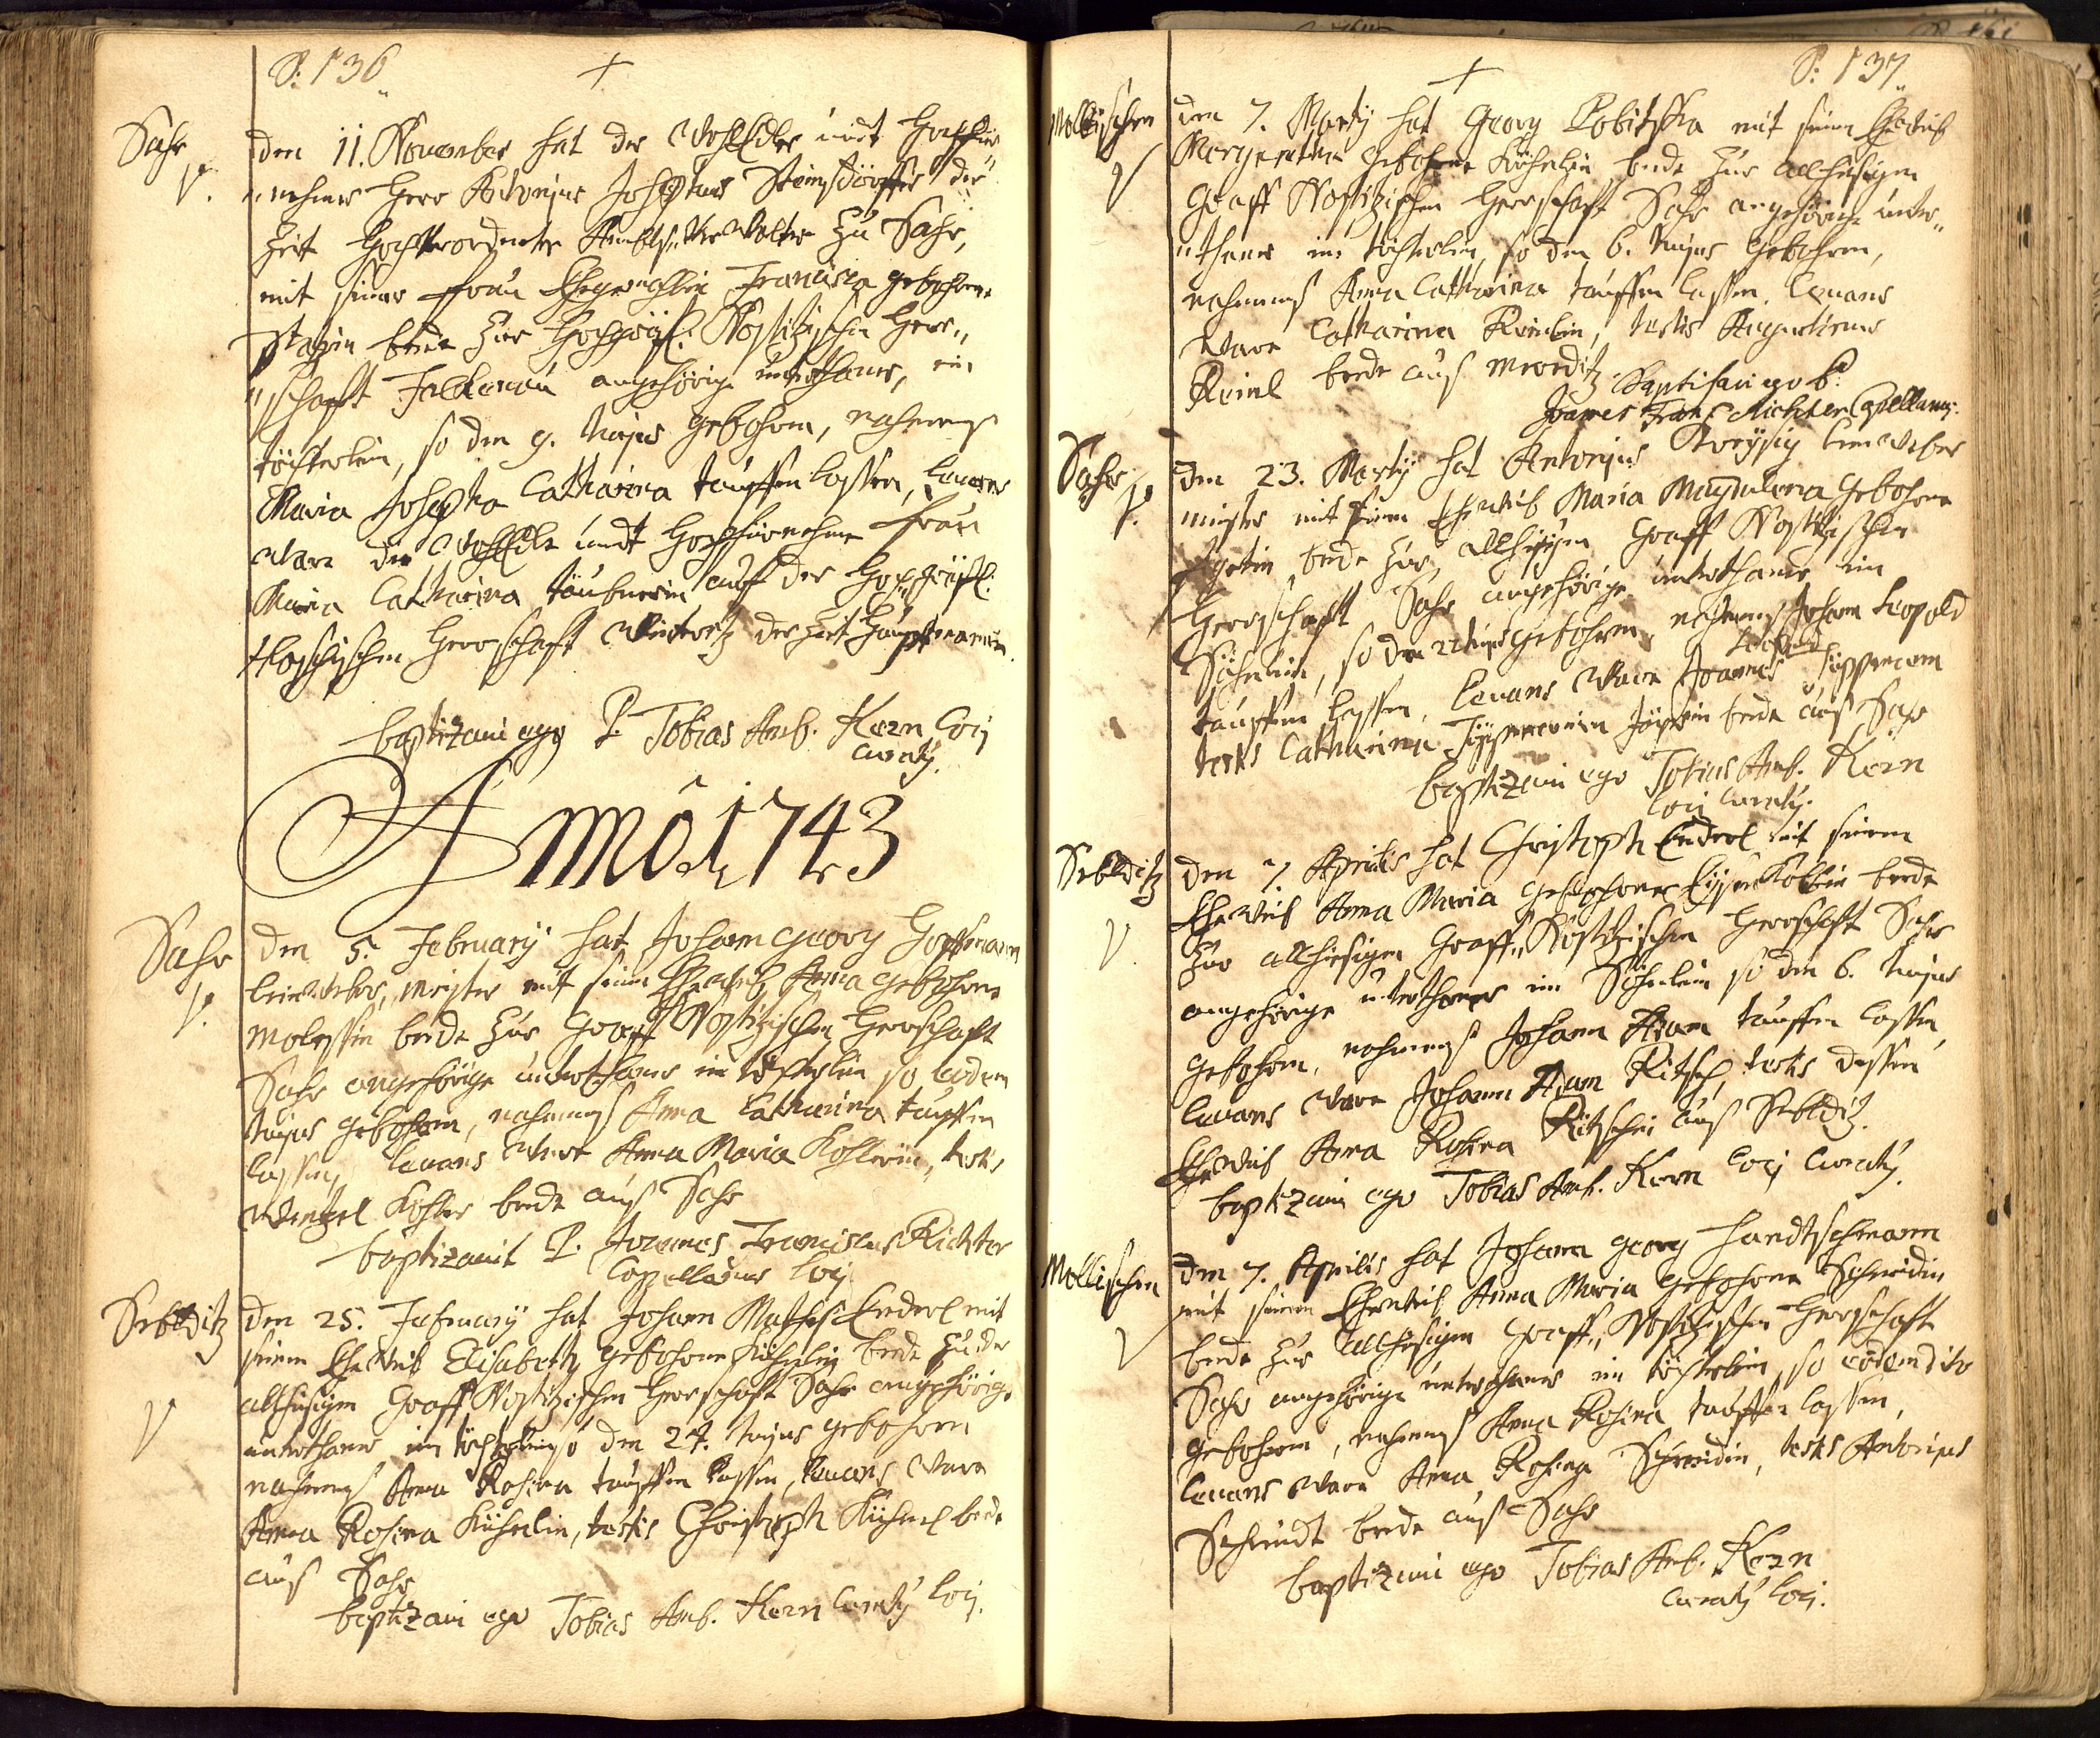 P: 136
+
Sahr
den 11. November hat der WohlEdle undt Hochfür„
„nehmer Herr Antonius Josephus Steinsdörffer der
Zeit Hochverordneter AmbtsVerWalter zu Sahr,
mit seiner Frau Ehegemahlin Francisca gebohrne
bede zur Hochgräfl: Nostitzischen Herr„
„schafft Falkenau angehörige unterthaner, ein
töchterlein, so den 9. hujus gebohren, nahmens
Maria Josepha Catharina tauffen lassen, Levans
Ware die WohlEdle undt Hochfürnehme Frau
Maria Catharina täubnerin auß der Hochgräfl:
Herrschafft Winteritz der Zeit Hauptmannin.
baptizavi ego P. Tobias Amb. Kern loci
curatg.
Anno 1743
Sahr
den 5. February hat Johann Georg Hoffmann
leinweber, meister mit seinem EheWeib Anna gebohrne
bede zur Graff Nostitzischen Herrschafft
Sahr angehörige unterthaner ein töchterlein so eodem
hujus gebohren, nahmens Anna Catharina tauffen
lassen, Levans Ware Anna Maria Kohlerin, testis
Wentzel Kohler bede auß Sahr
baptizavit P. Joannes Franciscus Richter
Capellanus loci
Sebeditz
den 25. February hat Johann Mathes Enderl mit
seinem EheWeib Elisabeth gebohrne Kühnlin bede zu der
allhiesigen Graff Nostitzischen Herrschafft Sahr angehörige
unterthaner ein töchterlein so den 24. hujus gebohren
nahmens Anna Rosina tauffen lassen, Levans Ware
Anna Rosina Kühnlin, testis Christoph Kühnel bede
auß Sahr
baptizavi ego Tobias Amb. Kern curatg loci.
+
P: 137
Mollischen
den 7. Marty hat Georg mit seinem EheWeib
Margaretha gebohrne Köhrlin bede zur allhiesigen
Graff Nostitzischen Herrschafft Sahr angehörige unter„
„thaner ein töchterlein, so den 6. hujus gebohren,
nahmens Anna Catharina tauffen lassen. Levans
Ware Catharina Reinlin, testis Augustinus
Reinl bede auß
Baptisavi ego P.
Joannes Franc. Richter Capellanus.
Sahr
den 23. Marty hat Antonius leinWeber
meister mit seinem EheWeib Maria Magdalena gebohrne
bede zur allhiesigen Graff Nostitzischen
Herrschafft Sahr angehörige unterthaner ein
Söhnlein, so den 22 hujus gebohren, nahmens Johann Leopold
tauffen lassen, Levans Ware Joannes Leopold
testis Catharina bede auß Sahr
baptizavi ego Tobias Amb. Kern
loci curatg.
Sebeditz
den 7 Aprilis hat Christoph Enderl mit seinem
EheWeib Anna Maria gebohrne bede
zur allhiesigen Graff„ Nostitzischen Herrschafft Sahr
angehörige unterthaner ein Söhnlein so den 6. hujus
gebohren, nahmens Johann Adam tauffen lassen,
Levans Ware Johann Adam Ritsch, testis dessen
EheWeib Anna Rosina Ritschin auß Sebeditz.
baptizavi ego Tobias Amb. Kern loci curatg.
Mollischen
den 7. Aprilis hat Johann Georg Handtschmann
mit seinem EheWeib Anna Maria gebohrne Schmidin
bede zur allhiesigen Graff„ Nostitzischen Herrschafft
Sahr angehörige unterthaner ein töchterlein, so eodem dito
gebohren, nahmens Anna Rosina tauffen lassen,
Levans Ware Anna Rosina Schmidin, testis Antonius
Schmidt bede auß Sahr
baptizavi ego Tobias Amb. Kern
curatg loci.